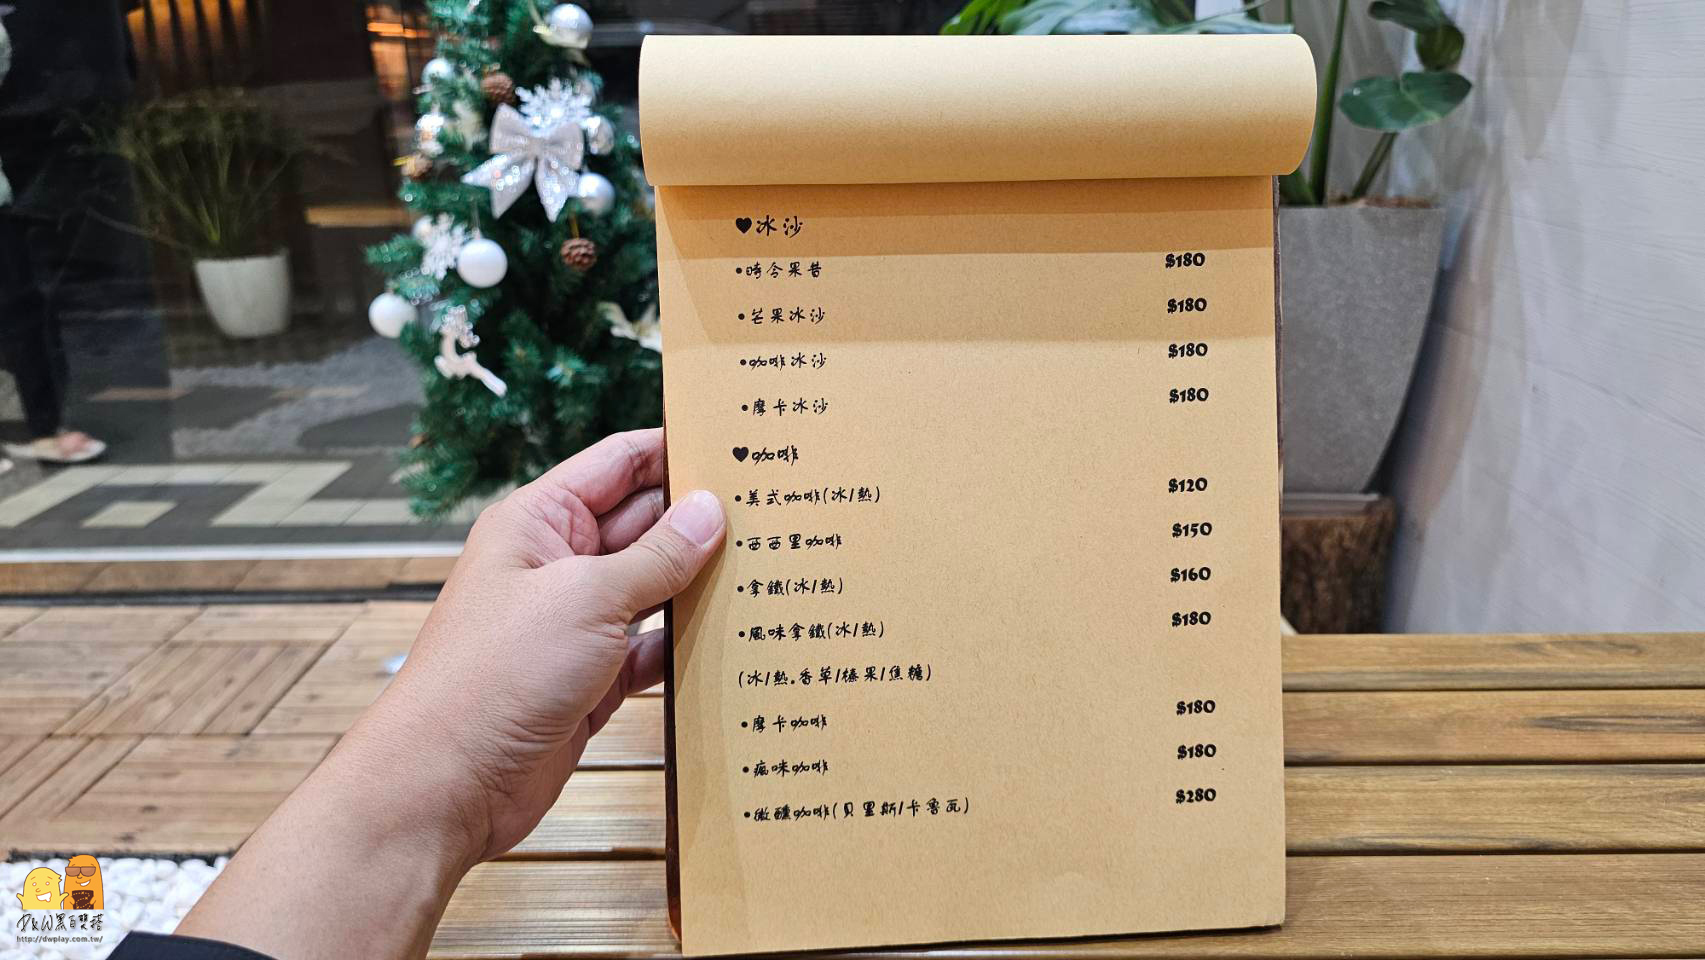 ♥冰沙
•時令果昔 $180
•芒果冰沙 $180
•咖啡冰沙 $180
•摩卡冰沙 $180
♥咖啡
•美式咖啡(冰/熱) $120
•西西里咖啡 $150
•拿鐵(冰/熱) $160
•風味拿鐵(冰/熱) $180
(冰/熱.香草/榛果/焦糖)
•摩卡咖啡 $180
•瘋味咖啡 $180
•微醺咖啡(貝里斯/卡魯瓦) $280
D&W黑白雙搭
http://dwplay.com.tw/